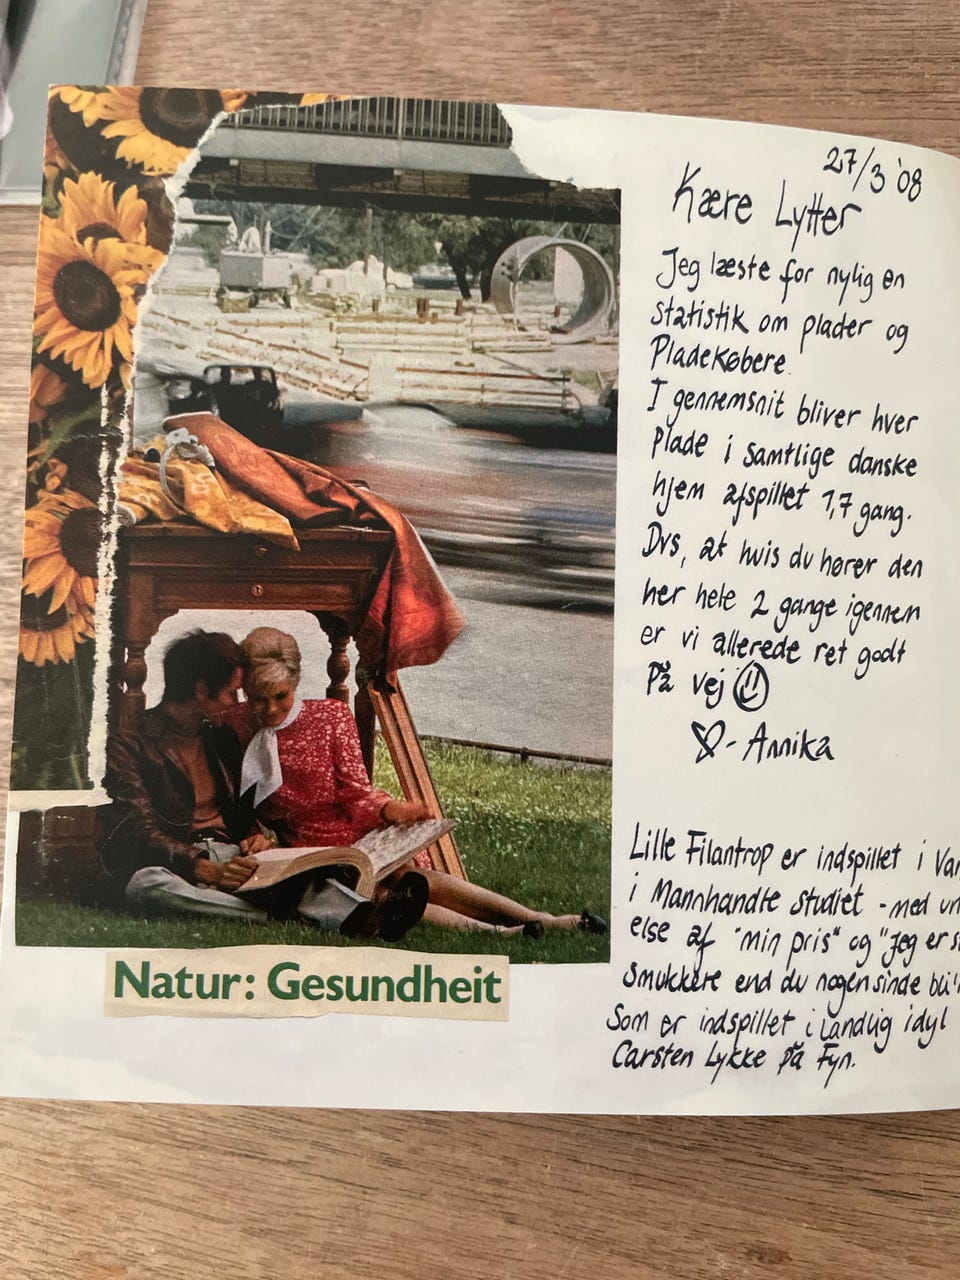 Natur: Gesundheit
27/3 '08
Kære Lytter
Jeg læste for nylig en
statistik om plader og
Pladekøbere.
I gennemsnit bliver hver
plade i samtlige danske
hjem afspillet 1,7 gang.
Dvs, at hvis du hører den
her hele 2 gange igennem
er vi allerede ret godt
på vej
- Annika
Lille Filantrop er indspillet i
i Mannhandte studiet - med
else af "min pris" og "Jeg er
smukkere end du nogensinde
Som er indspillet i landlig idyl
Carsten Lykke på Fyn.